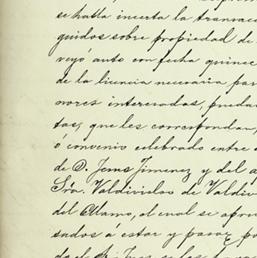 se halla inserta la transac
guidos sobre propiedad de
veyó auto con fecha quince
de la licencia necesaria par
nores interesados, puedan
tas, que les correspondan,
ó convenio celebrado entre
de D. Jesus Jimenez y del a
Srôn Valdivielso de Valdiv
del Alamo, el cual se apro
sados á estar y pasar po